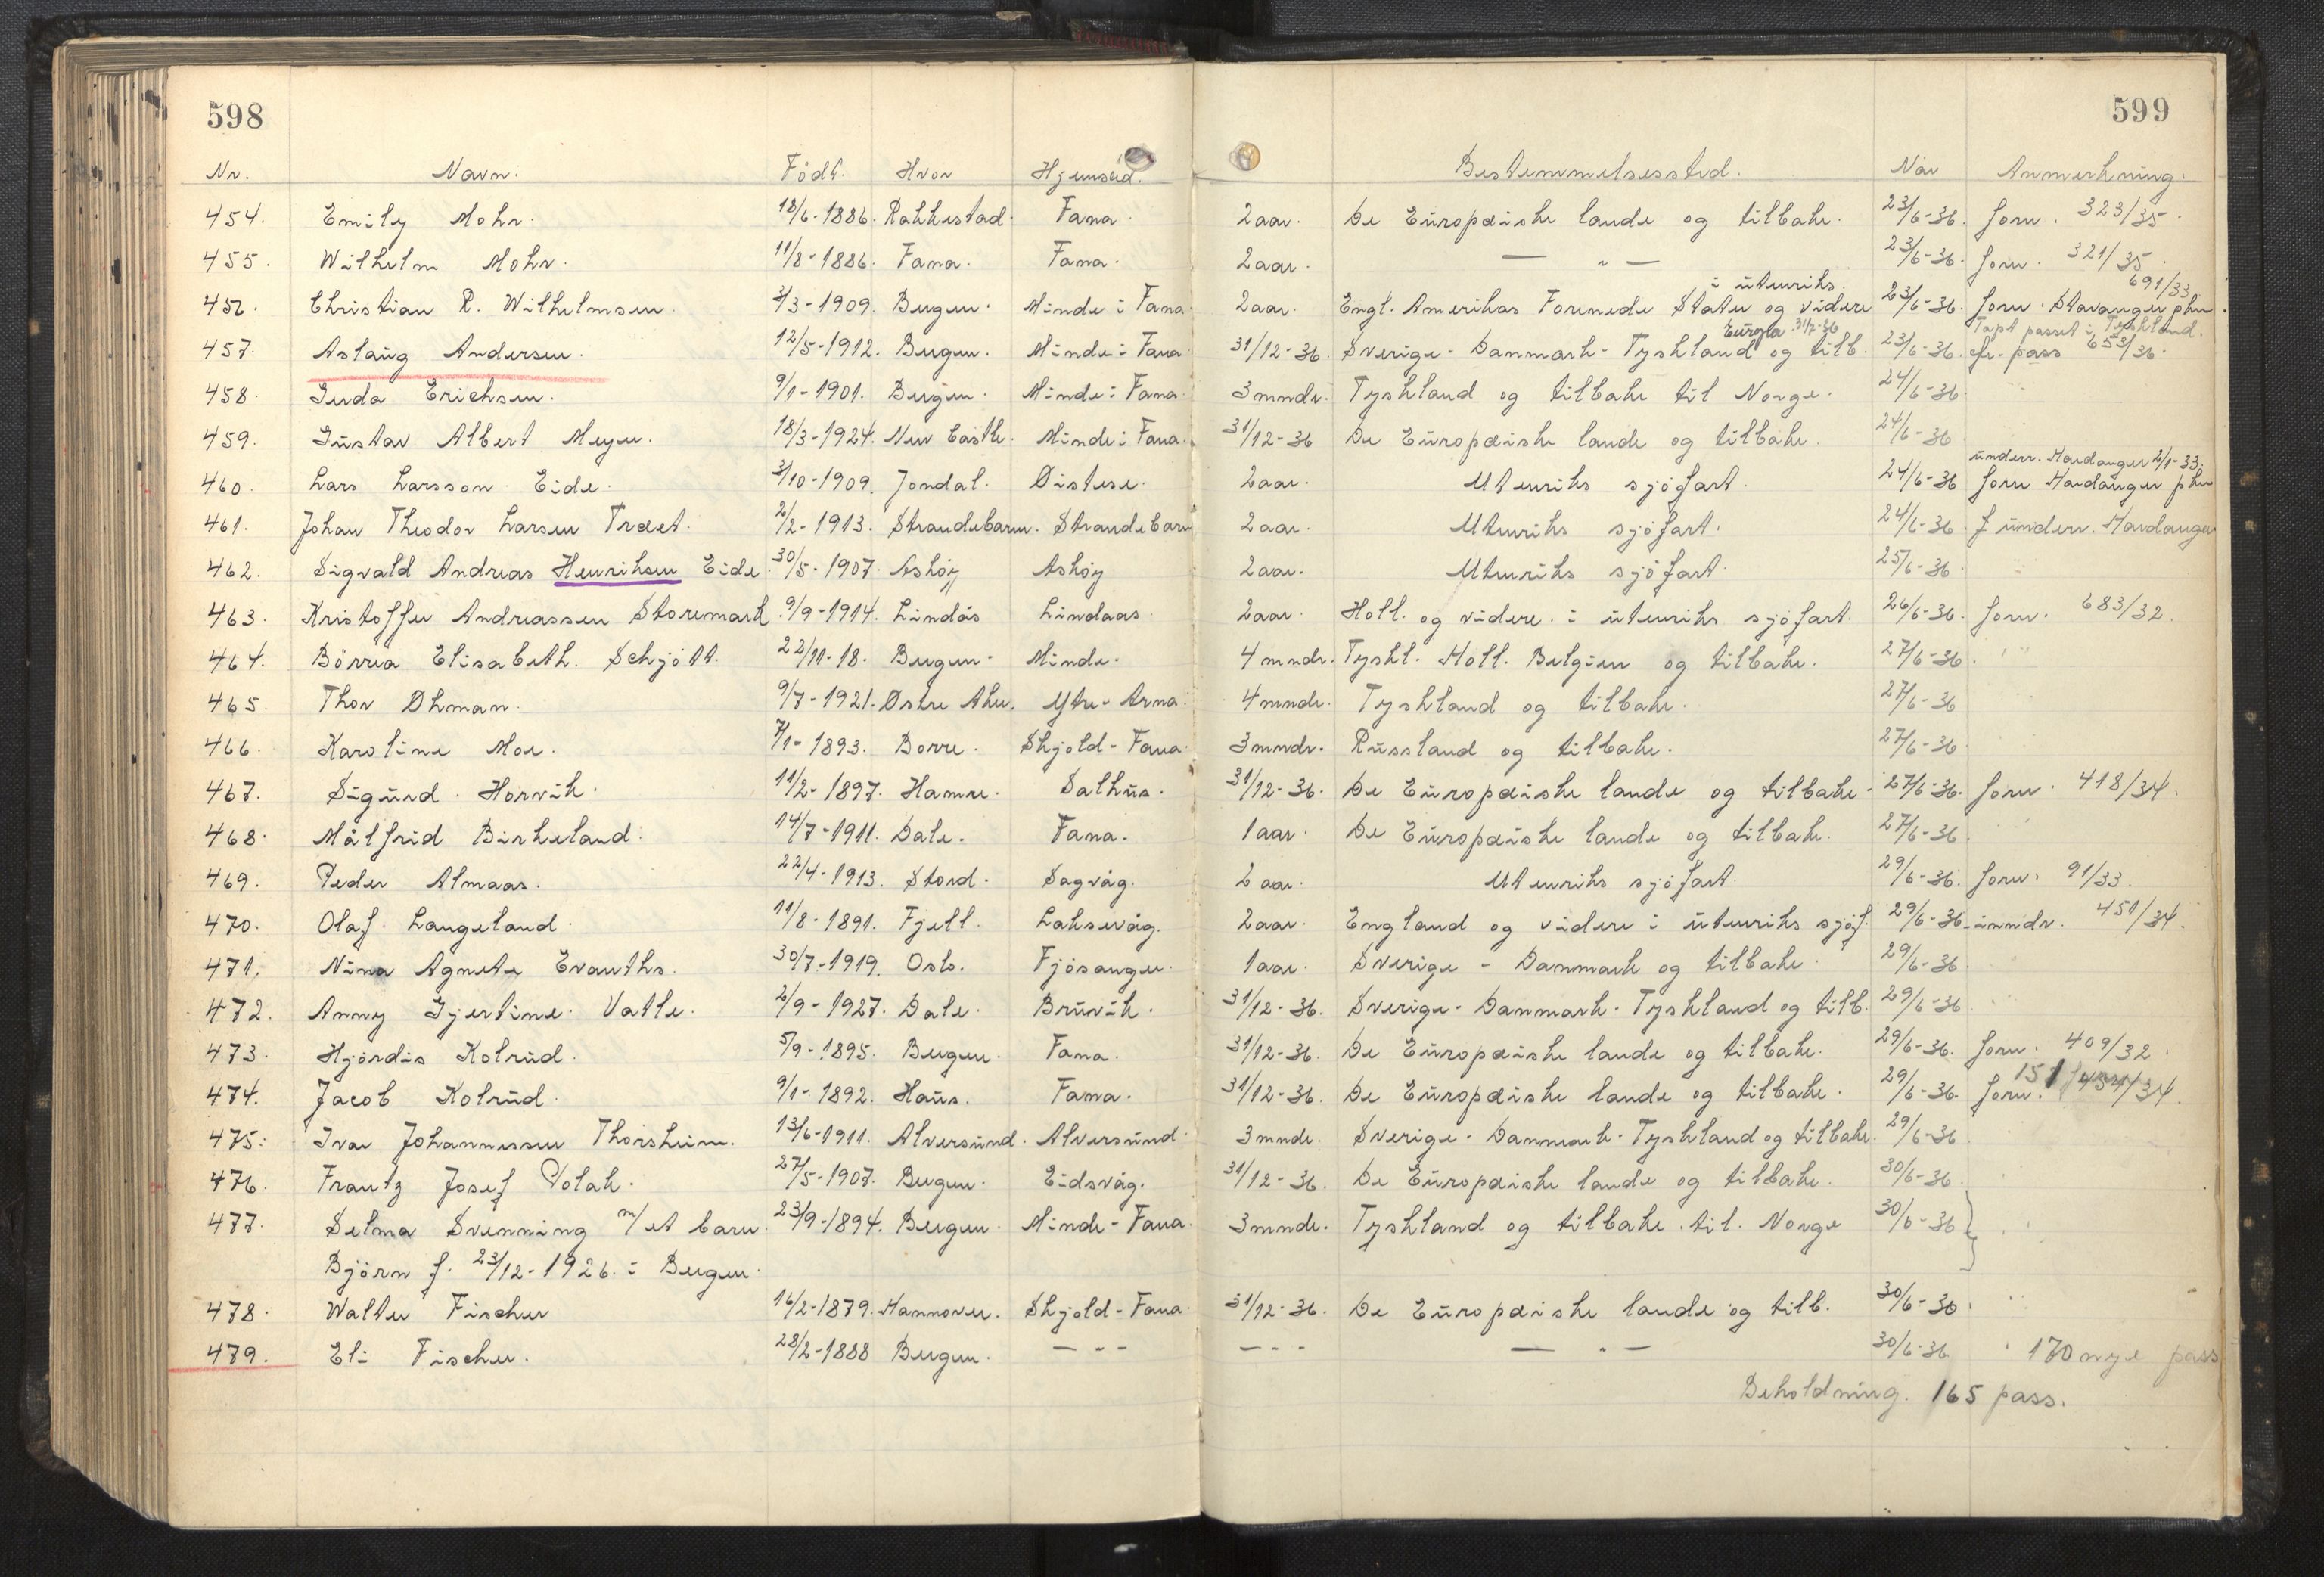 598
599
Nr. Navn. Född. Hvor Hjemsted. Bestemmelsessted. Når Anmerkning.
454. Emily Mohr. 18/6-1886. Rakkestad. Fana. 2 aar. De Europæiske lande og tilbake. 23/6-36. forn. 323/35.
455. Wilhelm Mohr. 11/8-1886. Fana. Fana. 2 aar. — " — 23/6-36. forn. 321/35.
i utenriks. 691/33.
456. Christian R. Wilhelmsen. 3/3-1909. Bergen. Minde i Fana. 2 aar. Engl. Amerikas Forenede Stater og videre 23/6-36. forn. Stavanger pkm.
Europa 31/7-36 Tapt passet i Tyskland.
457. Aslaug Andersen. 12/5-1912. Bergen. Minde i Fana. 31/12-36. Sverige - Danmark - Tyskland og tilb. 23/6-36. pass 653/36.
458. Gerda Erichsen. 9/1-1901. Bergen. Minde i Fana. 3 mndr. Tyskland og tilbake til Norge. 24/6-36.
459. Gustav Albert Meyer. 18/3-1924. New Castle. Minde i Fana. 31/12-36 De Europæiske lande og tilbake. 24/6-36
underr. Hardanger 2/1-33.
460. Lars Larsson Eide. 3/10-1909. Jondal. Östese. 2 aar. Utenriks sjöfart. 24/6-36 forn Hardanger pkm
461. Johan Theodor Larsen Træet. 2/2-1913. Strandebarm. Strandebarm 2 aar. Utenriks sjöfart. 24/6-36. f underr. Hardanger
462. Sigvald Andreas Henriksen Eide. 30/5-1907. Askøy Askøy 2 aar. Utenriks sjöfart. 25/6-36.
463. Kristoffer Andreassen Storemark. 9/9-1914. Lindås Lindaas. 2 aar. Holl. og videre i utenriks sjöfart. 26/6-36. forn. 683/32.
464. Börrea Elisabeth Schjött. 22/11-18. Bergen. Minde. 4 mndr. Tyskl. Holl. Belgien og tilbake. 27/6-36.
465. Thor Öhman. 9/7-1921. Östre Aker. Ytre-Arna. 4 mndr. Tyskland og tilbake. 27/6-36
466. Karoline Moe. 7/1-1893. Borre. Skjold-Fana. 3 mndr. Russland og tilbake. 27/6-36
467. Sigurd Horvik. 11/2-1897. Hamre. Salhus. 31/12-36. De Europæiske lande og tilbake. 27/6-36. forn. 418/34.
468. Målfrid Birkeland. 14/7-1911. Dale. Fana. 1 aar. De Europæiske lande og tilbake. 27/6-36.
469. Peder Almaas. 22/4-1913. Stord. Sagvåg. 2 aar. Utenriks sjöfart. 29/6-36. forn. 91/33.
470. Olaf Langeland. 11/8-1891. Fjell. Laksevåg. 2 aar. England og videre i utenriks sjöf. 29/6-36. unndr. 451/34.
471. Nina Agnete Evanths. 30/7-1919. Oslo. Fjösanger. 1 aar. Sverige - Danmark og tilbake. 29/6-36.
472. Anny Gjertine Vatle. 2/9-1927. Dale. Bruvik. 31/12-36. Sverige - Danmark - Tyskland og tilb. 29/6-36
473. Hjördis Kolrud. 5/9-1895. Bergen. Fana. 31/12-36. De Europæiske lande og tilbake. 29/6-36. forn. 409/32.
474. Jacob Kolrud. 9/1-1892. Haus. Fana. 31/12-36. De Europæiske lande og tilbake. 29/6-36. forn. 151
475. Ivar Johannessen Thorsheim. 13/6-1911. Alversund. Alversund. 3 mndr. Sverige - Danmark - Tyskland og tilbake. 29/6-36
476. Frantz Josef Polak. 27/5-1907. Bergen. Eidsvåg. 31/12-36. De Europæiske lande og tilbake. 30/6-36.
477. Selma Svenning m/et barn. 23/9-1894. Bergen. Minde-Fana. 3 mndr. Tyskland og tilbake til Norge 30/6-36
Björn f. 23/12-1926 i Bergen.
478. Walter Fischer 16/2-1879. Hannover. Skjold-Fana. 31/12-36. De Europæiske lande og tilb. 30/6-36.
479. Eli Fischer. 28/2-1888 Bergen. — - - — - - — " — 30/6-36 170 nye pass
Beholdning. 165 pass.